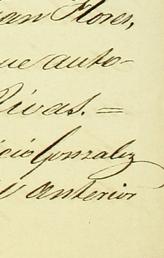 an Flores,
ue auto-
Rivas.=
icio Gonzalez
anterior